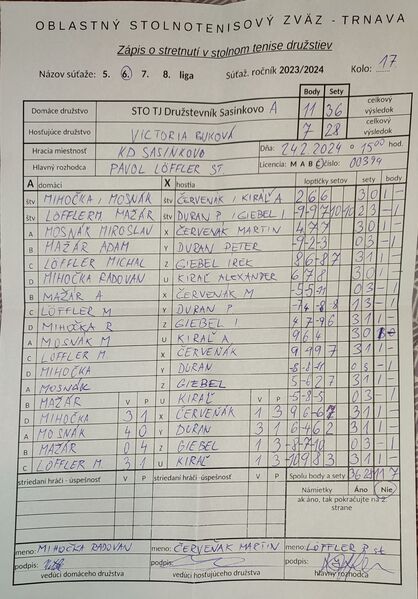 OBLASTNÝ STOLNOTENISOVÝ ZVÄZ - TRNAVA
Zápis o stretnutí v stolnom tenise družstiev
Názov súťaže: 5. 6. 7. 8. liga Súťaž. ročník 2023/2024 Kolo: 17
Body Sety
Domáce družstvo STO TJ Družstevník Sasinkovo A 11 36 celkový výsledok
Hosťujúce družstvo VICTORIA BUKOVÁ 7 28 celkový výsledok
Hracia miestnosť KD SASINKOVO Dňa: 24.2.2024 o 15 00 hod.
Hlavný rozhodca PAVOL LÖFFLER ST Licencia: M A B C číslo: 00394
A domáci X hostia loptičky setov sety body
štv MIHOČKA, MOSNÁK štv ČERVENÁK, KIRÁĽ A 2 6 6 3 0 1 -
štv LÖFFLER M, MAŽÁR štv DURAN P, GIEBEL I 2 3 - 1
A MOSNÁK MIROSLAV X ČERVENÁK MARTIN 4 7 7 3 0 1 -
B MAŽÁR ADAM Y DURAN PETER -9 -2 -3 0 3 - 1
C LÖFFLER MICHAL Z GIEBEL IREK 8 6 -8 7 3 1 1 -
D MIHOČKA RADOVAN U KIRÁĽ ALEXANDER 6 7 8 3 0 1 -
B MAŽÁR A X ČERVENÁK M -5 -5 -11 0 3 - 1
C LÖFFLER M Y DURAN P 1 3 - 1
D MIHOČKA R Z GIEBEL I 4 7 -9 6 3 1 1 -
A MOSNÁK M U KIRÁĽ A 9 6 4 3 0
C LÖFFLER M X ČERVENÁK 9 -9 9 7 3 1 1 -
D MIHOČKA Y DURAN -5 -8 -11 0 3 - 1
A MOSNÁK Z GIEBEL 5 -6 2 7 3 1 1 -
B MAŽÁR V P U KIRÁĽ V P -5 -8 -5 0 3 - 1
D MIHOČKA 3 1 X ČERVENÁK 1 3 9 6 -6 7 3 1 1 -
A MOSNÁK 4 0 Y DURAN 3 1 6 -4 6 2 3 1 1 -
B MAŽÁR 0 4 Z GIEBEL 1 3 -8 -7 -10 0 3 - 1
C LÖFFLER M 3 1 U KIRÁĽ 1 3 -10 9 8 3 3 1 1 -
striedaní hráči - úspešnosť V P striedaní hráči - úspešnosť V P Spolu body a sety 36 28 11 7
Námietky Áno Nie
ak áno, tak pokračujte na 2. strane
meno: MIHOČKA RADOVAN meno: ČERVENÁK MARTIN meno: LÖFFLER P. st
podpis: podpis: podpis:
vedúci domáceho družstva vedúci hosťujúceho družstva hlavný rozhodca